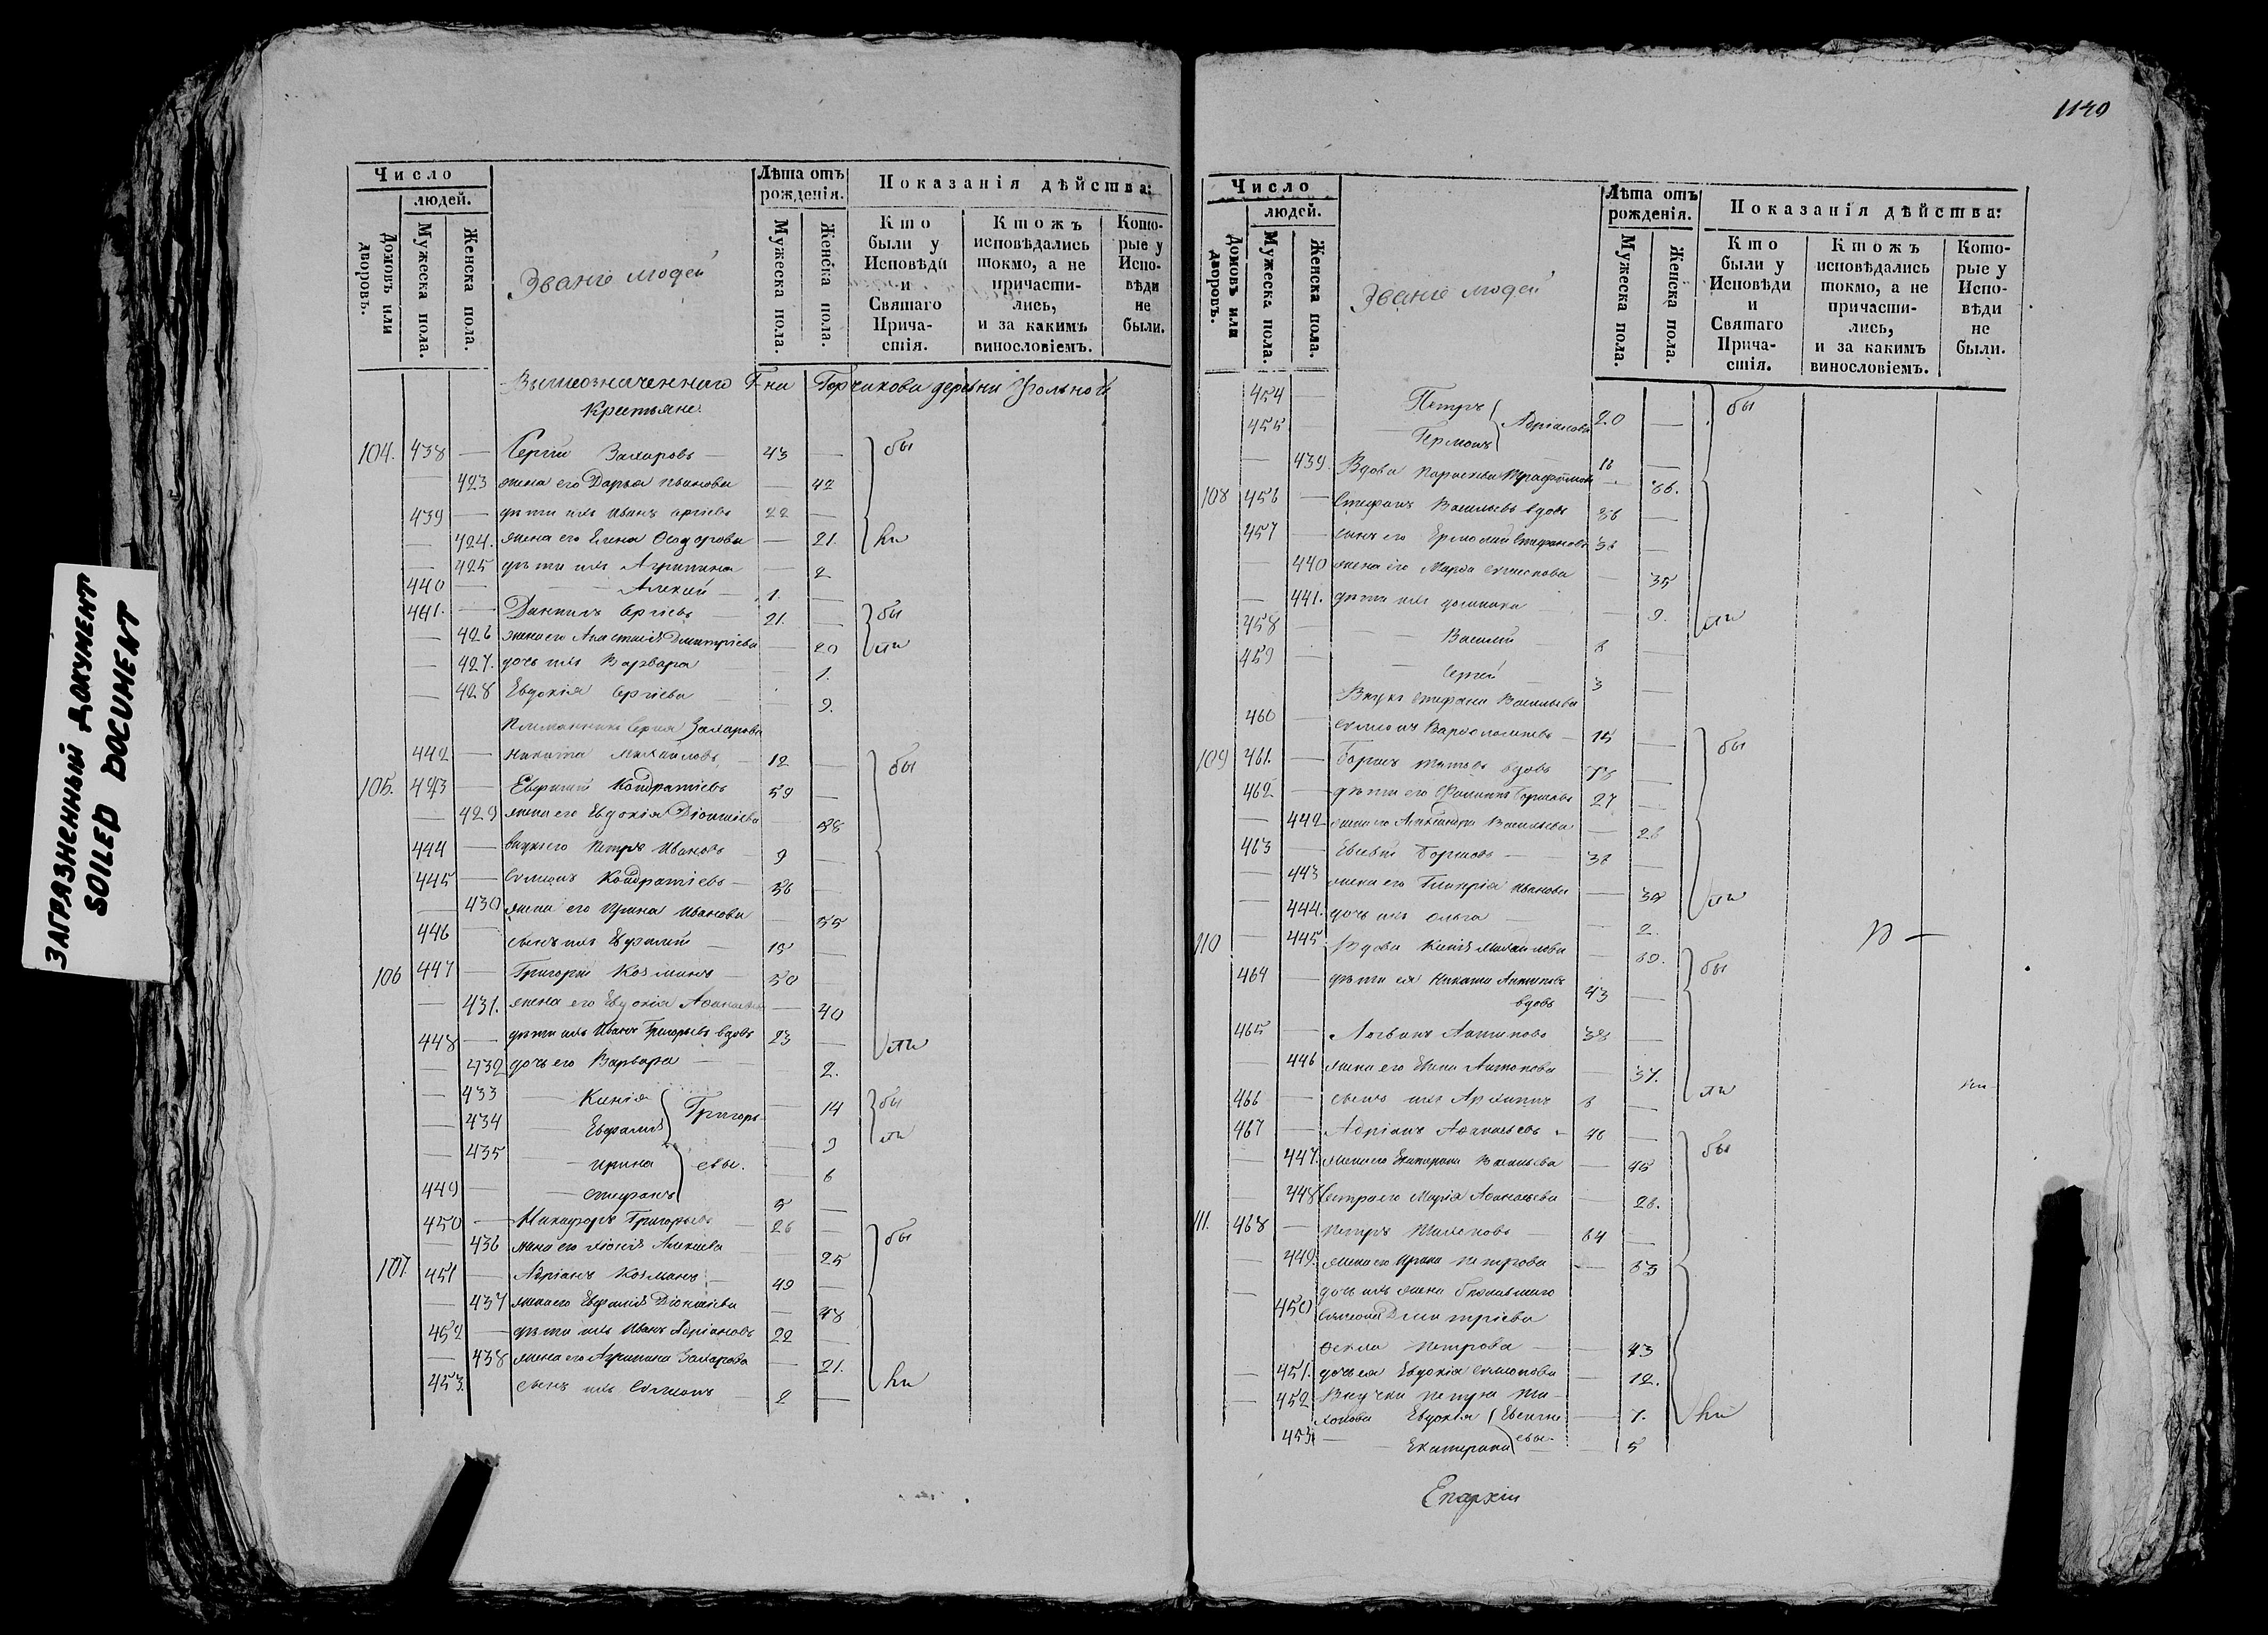 ЗАГРЯЗНЕННЫЙ ДОКУМЕНТ
SOILED DOCUMENT
Число
людей.
Домовъ или дворовъ.
Мужеска пола.
Женска пола.
Званіе людей
Лѣта отъ рожденія.
Мужеска пола.
Женска пола.
Показанія дѣйства:
Кто были у Исповѣди и Святаго Причастія.
Ктожъ исповѣдались токмо, а не причастились, и за какимъ винословіемъ.
Которые у Исповѣди не были.
Вышеозначеннаго Гна Горчакова деревни Угольной
Крестьяне.
104. 438 — Сергій Захаровъ — 43 — бы
— 423 жена его Дарья Иванова — 42
439 — дѣти ихъ Иванъ Сергіевъ 22 —
— 424. жена его Елена — 21. ли
— 425 дѣти ихъ Агрипина — 2
440 — Алексѣй — 1. —
441. — Даніилъ Сергіевъ 21. — бы
— 426 жена его Анастасія Дмитріева — 20 ли
— 427. дочь ихъ Варвара — 1.
— 428 Евдокія Сергіева 9.
Племянникъ Сергія Захарова
442 — Никита Михайловъ — 12 — бы
105. 443 — Евфимій Кондратіевъ 59 —
— 429 жена его Евдокія Діонисіева — 58
444 — внукъ его Петръ Ивановъ 9 —
445 — Симеонъ Кондратіевъ — 56 —
— 430 жена его Ирина Иванова — 55
446 — сынъ ихъ — 15 —
106 447 — Григорій Козминъ — 50 —
— 431. жена его Евдокія — 40
448 — дѣти ихъ Иванъ Григорьевъ вдовъ 23 — ли
— 432 дочь его Варвара — 2.
— 433 — Ксенія Григорь- — 14 бы
— 434 Евфимія — 9 ли
— 435 — Ирина евы. — 6
449 — Стефанъ 5 —
450 — Никифоръ Григорьевъ — 26 — бы
— 436 жена его Алексѣева 25
107 451 — Адріанъ Козминъ — 49 —
— 437 жена его Евфимія Діонисіева — 48
452 — дѣти ихъ Иванъ Адріановъ 22 —
— 438 жена его Агрипина Захарова — 21.
453. сынъ ихъ Симеонъ — 2 — ли
1140
Число
людей.
Домовъ или дворовъ.
Мужеска пола.
Женска пола.
Званіе людей
Лѣта отъ рожденія.
Мужеска пола.
Женска пола.
Показанія дѣйства:
Кто были у Исповѣди и Святаго Причастія.
Ктожъ исповѣдались токмо, а не причастились, и за какимъ винословіемъ.
Которые у Исповѣди не были.
454 — Петръ Адріановы 20 — бы
455 — 16 —
— 439. Вдова Параскева — 66.
108 456 — Стефанъ Васильевъ вдовъ 56 —
457 — сынъ его Ермолай Стефановъ 36 —
— 440 жена его — 35
— 441. дѣти ихъ — 9. ли
458 — Василій —
459 — Сергей — 3 —
Внукъ Стефана Васильева
460 — Симеонъ Варфоломеевъ — 15 — бы
109 461. — Борисъ Титовъ вдовъ —
462 — дѣти его Филиппъ Борисовъ 27 —
— 442 жена его Александра Васильева — 26
463 — Евсевій Борисовъ — —
— 443 жена его Гликерія Иванова — ли
— 444. дочь ихъ Ольга — 2.
110 — 445 Вдова Ксенія Михайлова — 60. бы
464 — дѣти ея Никита Антиповъ 43 —
вдовъ
465 — Логвинъ Антиповъ 38 —
— 446 жена его Елена Антонова — 37. ли
466 — сынъ ихъ Архипъ 6 —
467 — Адріанъ Афанасьевъ — 46 — бы
— 447. жена его Екатерина Васильева — 45
— 448 Сестра его Марія Афанасьева — 26.
111. 468 — Петръ Тихоновъ — 64 —
— 449. жена его Ирина Петрова — 63
— дочь ихъ жена бывшаго
450 Симеона Дмитріева
Ѳекла Петрова — — 43
— 451. дочь ея Евдокія Симеонова — 12.
— 452 Внучки Петра Ти-
хонова Евдокія Евгені- — 7. ли
453 — Екатерина евы — 5
Епархіи